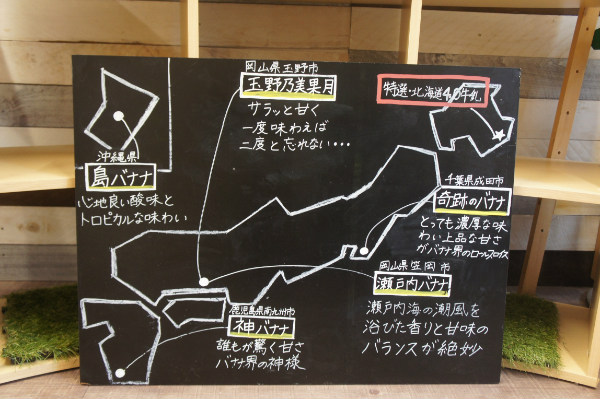 岡山県玉野市
玉野乃美果月
サラッと甘く
一度味わえば
二度と忘れない・・・
特選・北海道4.0牛乳
沖縄県
島バナナ
心地良い酸味と
トロピカルな味わい
千葉県成田市
奇跡のバナナ
とっても濃厚な味
わい上品な甘さ
がバナナ界のロールスロイス
岡山県笠岡市
瀬戸内バナナ
瀬戸内海の潮風を
浴びた香りと甘味の
バランスが絶妙
鹿児島県南九州市
神バナナ
誰もが驚く甘さ
バナナ界の神様